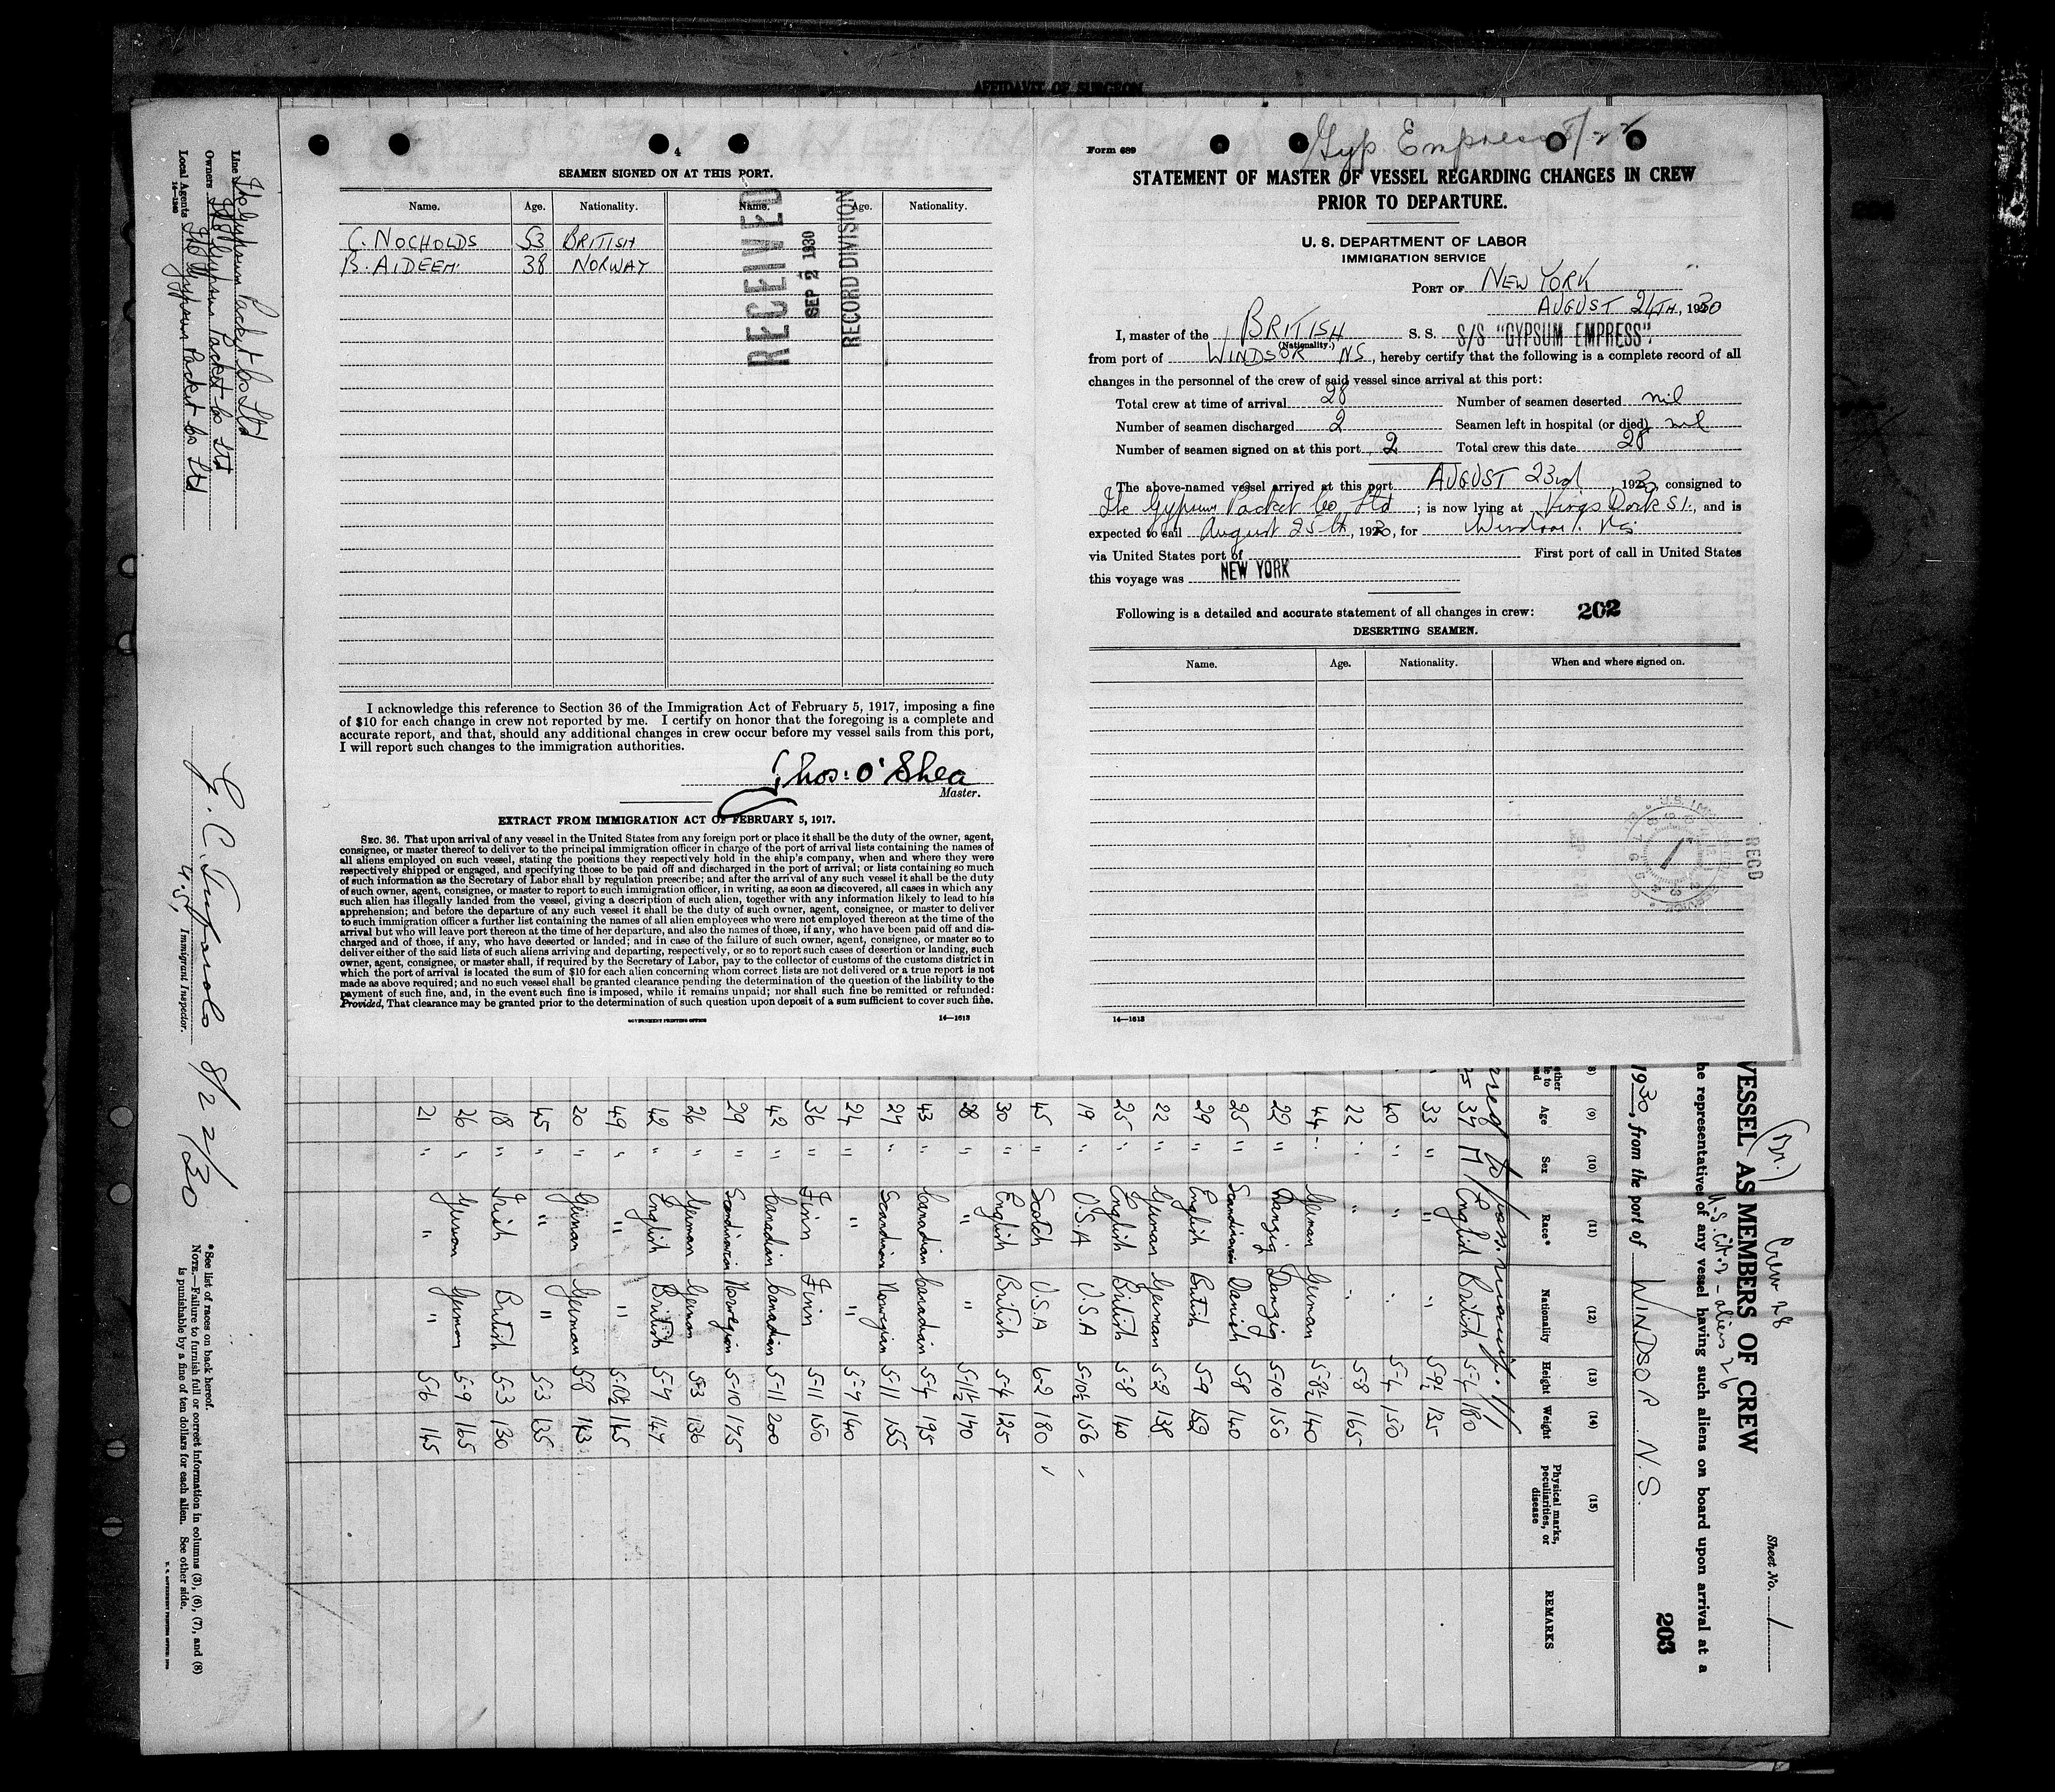 AFFIDAVIT OF SURGEON
4
SEAMEN SIGNED ON AT THIS PORT.
Name. Age. Nationality. Name. Age. Nationality.
C. NOCHOLDS 53 BRITISH
B. AIDEEM. 38 NORWAY
RECEIVED
SEP 2 1930
RECORD DIVISION
I acknowledge this reference to Section 36 of the Immigration Act of February 5, 1917, imposing a fine
of $10 for each change in crew not reported by me. I certify on honor that the foregoing is a complete and
accurate report, and that, should any additional changes in crew occur before my vessel sails from this port,
I will report such changes to the immigration authorities.
Chos: O'Shea
Master.
EXTRACT FROM IMMIGRATION ACT OF FEBRUARY 5, 1917.
SEC. 36. That upon arrival of any vessel in the United States from any foreign port or place it shall be the duty of the owner, agent,
consignee, or master thereof to deliver to the principal immigration officer in charge of the port of arrival lists containing the names of
all aliens employed on such vessel, stating the positions they respectively hold in the ship's company, when and where they were
respectively shipped or engaged, and specifying those to be paid off and discharged in the port of arrival; or lists containing so much
of such information as the Secretary of Labor shall by regulation prescribe; and after the arrival of any such vessel it shall be the duty
of such owner, agent, consignee, or master to report to such immigration officer, in writing, as soon as discovered, all cases in which any
such alien has illegally landed from the vessel, giving a description of such alien, together with any information likely to lead to his
apprehension; and before the departure of any such vessel it shall be the duty of such owner, agent, consignee, or master to deliver
to such immigration officer a further list containing the names of all alien employees who were not employed thereon at the time of the
arrival but who will leave port thereon at the time of her departure, and also the names of those, if any, who have been paid off and dis-
charged and of those, if any, who have deserted or landed; and in case of the failure of such owner, agent, consignee, or master so to
deliver either of the said lists of such aliens arriving and departing, respectively, or so to report such cases of desertion or landing, such
owner, agent, consignee, or master shall, if required by the Secretary of Labor, pay to the collector of customs of the customs district in
which the port of arrival is located the sum of $10 for each alien concerning whom correct lists are not delivered or a true report is not
made as above required; and no such vessel shall be granted clearance pending the determination of the question of the liability to the
payment of such fine, and, in the event such fine is imposed, while it remains unpaid; nor shall such fine be remitted or refunded:
Provided, That clearance may be granted prior to the determination of such question upon deposit of a sum sufficient to cover such fine.
GOVERNMENT PRINTING OFFICE 14—1613
Form 689
Gyp Empress 8/22
STATEMENT OF MASTER OF VESSEL REGARDING CHANGES IN CREW
PRIOR TO DEPARTURE.
U. S. DEPARTMENT OF LABOR
IMMIGRATION SERVICE
PORT OF NEW YORK
AUGUST 24TH, 1930
I, master of the BRITISH S. S. S/S "GYPSUM EMPRESS".
(Nationality.)
from port of WINDSOR NS, hereby certify that the following is a complete record of all
changes in the personnel of the crew of said vessel since arrival at this port:
Total crew at time of arrival 28 Number of seamen deserted nil
Number of seamen discharged 2 Seamen left in hospital (or died) nil
Number of seamen signed on at this port 2 Total crew this date 28
The above-named vessel arrived at this port AUGUST 23rd, 1930, consigned to
The Gypsum Packet Co Ltd; is now lying at Kings Dock S.I., and is
expected to sail August 25th, 1930, for Windsor. NS
via United States port of First port of call in United States
this voyage was NEW YORK
Following is a detailed and accurate statement of all changes in crew: 202
DESERTING SEAMEN.
Name. Age. Nationality. When and where signed on.
RECD
14—1613
Line The Gypsum Packet Co Ltd
Owners The Gypsum Packet Co Ltd
Local Agents The Gypsum Packet Co Ltd
14—1240
8/22/30
Immigrant Inspector.
*See list of races on back hereof.
NOTE.—Failure to furnish full or correct information in columns (3), (6), (7), and (8)
is punishable by a fine of ten dollars for each alien. See other side.
Sheet No. 1
Crew 28
(Br.)
U.S. Cit 2 - aliens 26
VESSEL AS MEMBERS OF CREW
he representatives of any vessel having such aliens on board upon arrival at a
1930, from the port of WINDSOR N.S.
203
(9) (10) (11) (12) (13) (14) (15)
Age Sex Race* Nationality Height Weight Physical marks, peculiarities, or disease REMARKS
37 M English British 5-4 180
33 " " " 5-9½ 135
40 " " " 5-4 150
22 " " " 5-8 165
44 " German German 5-8½ 140
22 " Danzig Danzig 5-10 150
25 " Scandinavian Danish 5-8 140
29 " English British 5-9 152
22 " German German 5-2 138
25 " English British 5-8 140
19 " U.S.A U.S.A 5-10½ 156
45 " Scotch U.S.A 6-2 180
30 " English British 5-4 125
28 " " " 5-11½ 170
43 " Canadian Canadian 5-4 195
27 " Scandinavian Norwegian 5-11 155
24 " " " 5-7 140
36 " Finn Finn 5-11 150
42 " Canadian Canadian 5-11 200
29 " Scandinavian Norwegian 5-10 175
26 " German German 5-3 136
42 " English British 5-7 147
49 " " " 5-0½ 145
20 " German German 5-8 143
45 " " " 5-3 135
18 " Irish British 5-3 130
26 " German German 5-9 165
21 " " " 5-6 145